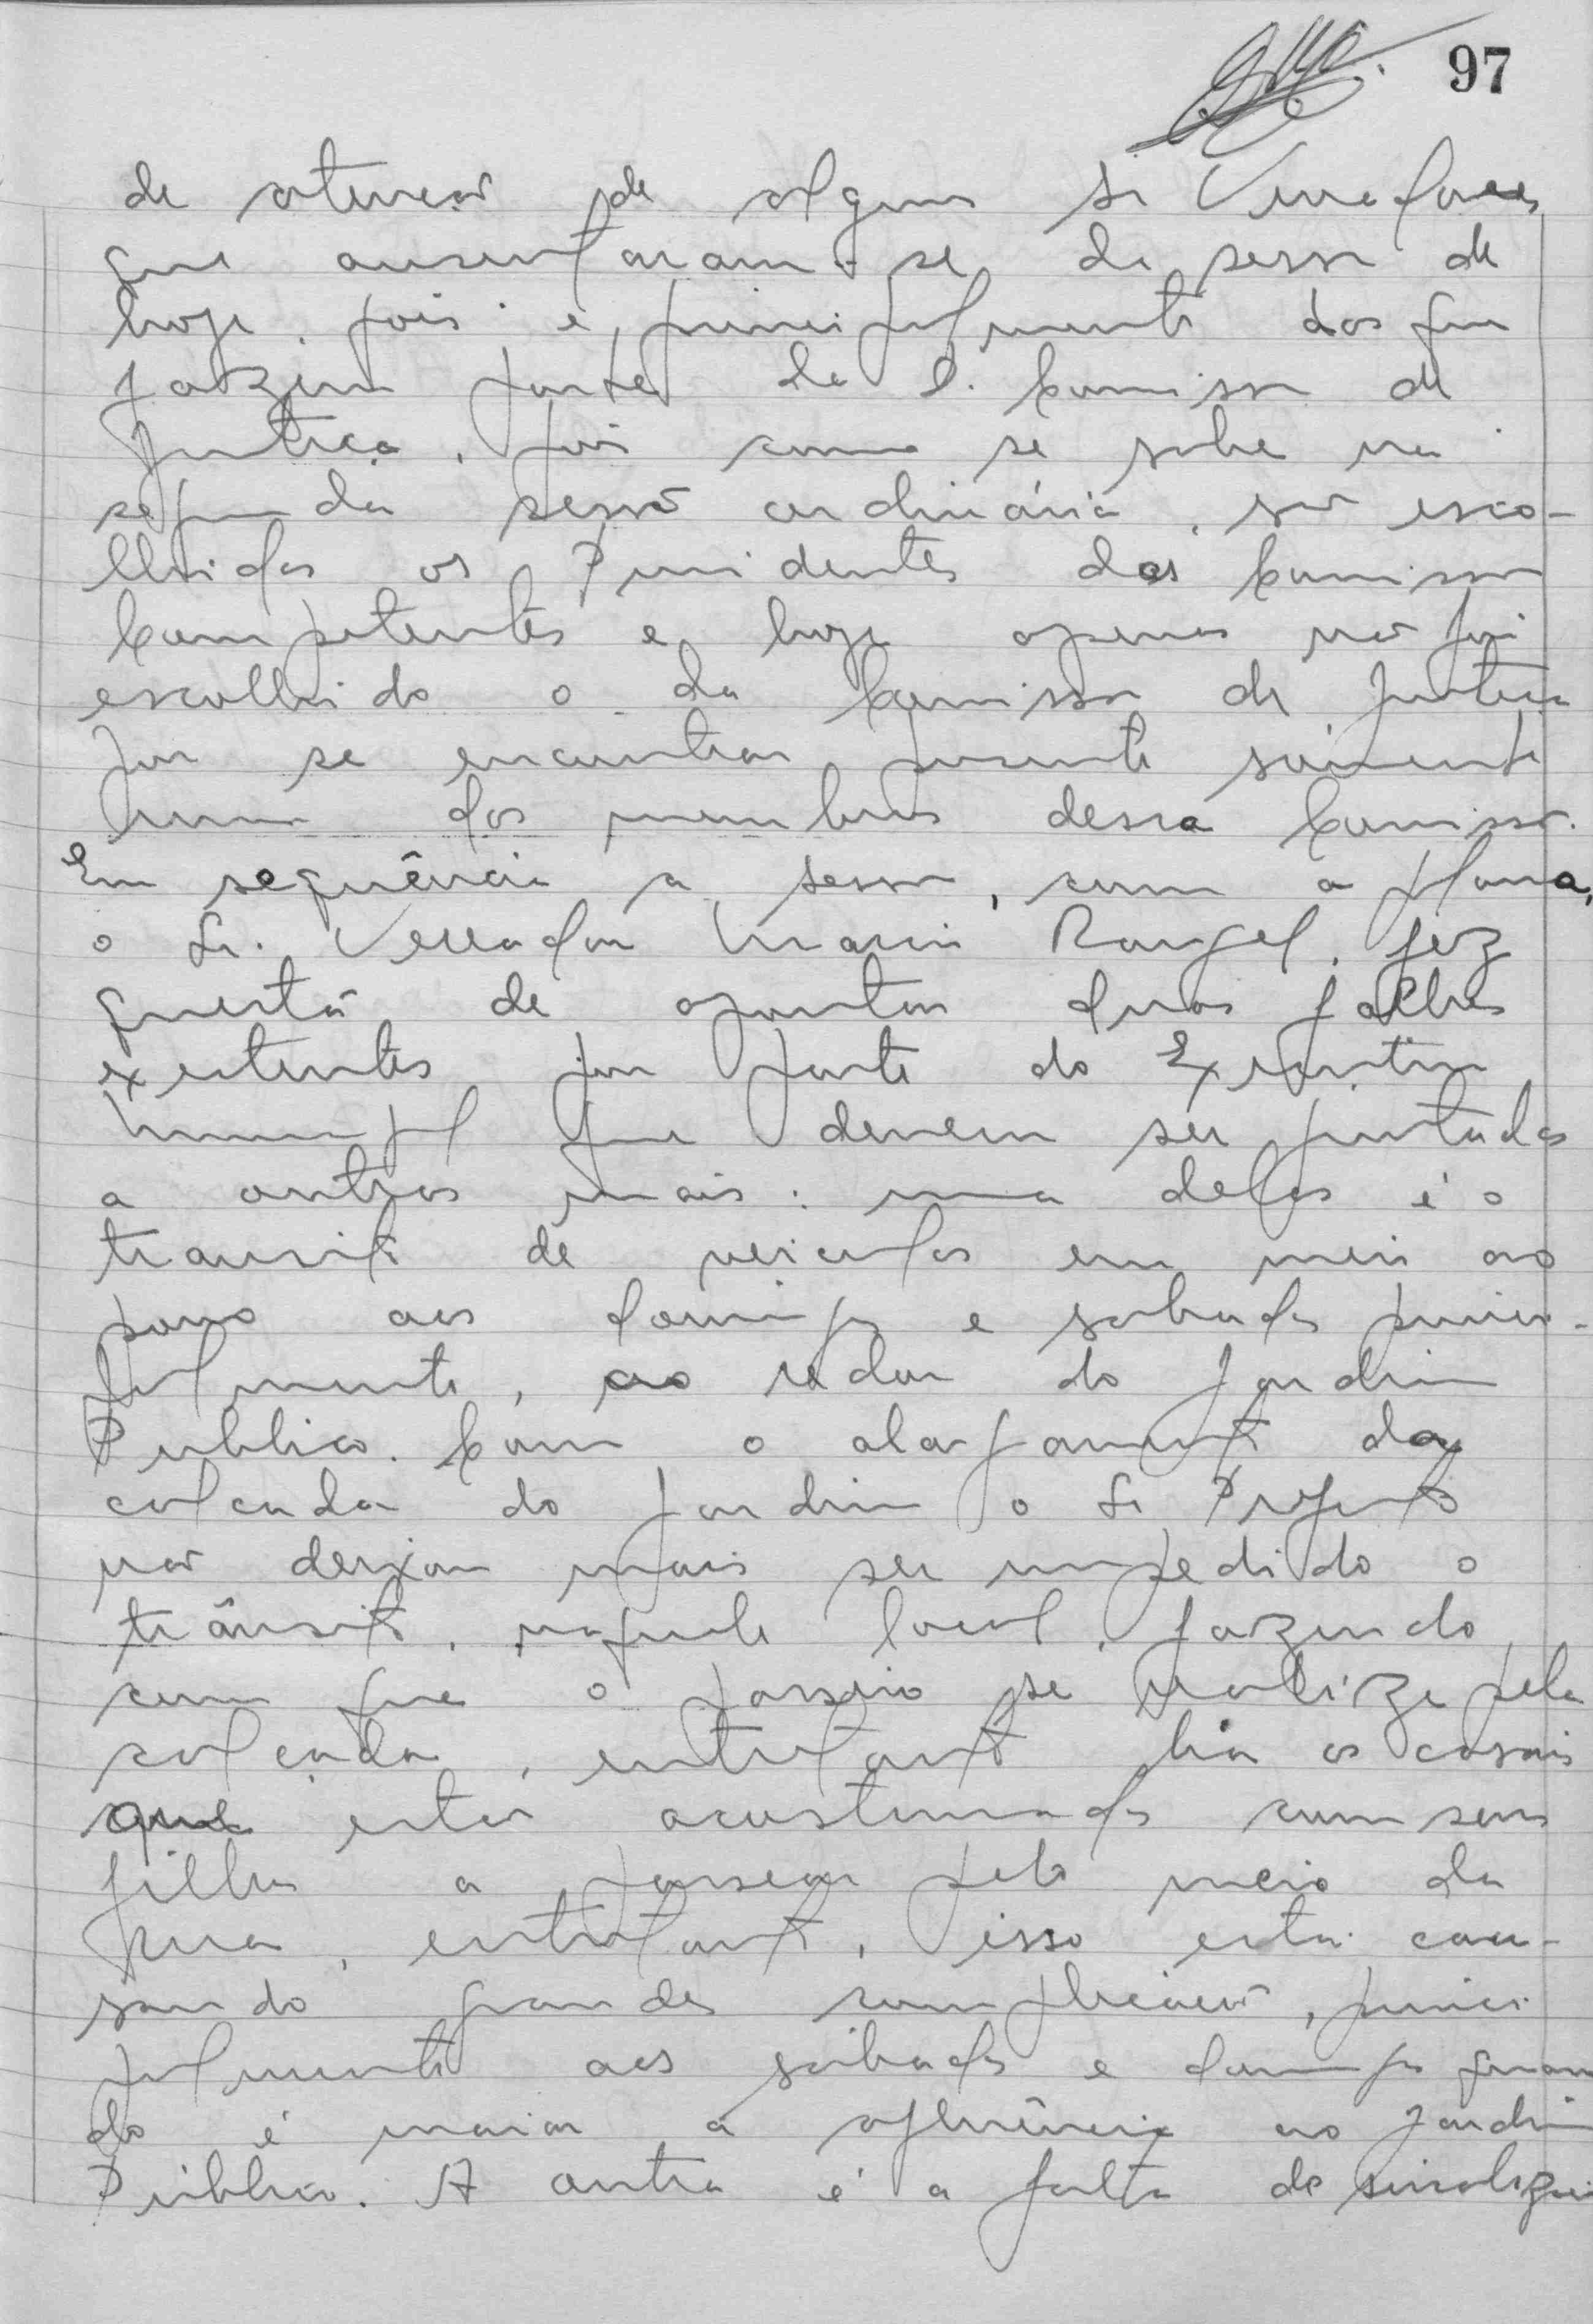 97
de atenção de alguns Sr Vereadores
que ausentaram-se da sessão de
hoje, pois é, principalmente dos que
fazem parte da C. Comissão de
Justiça, pois como se sabe na
segunda sessão ordinária, são esco-
lhidos os Presidentes das Comissão
Competentes e hoje apenas não foi
escolhido o da Comissão de Justiça
por se encontrar presente sòmente
hum dos membros dessa Comissão.
Em sequência a sessão, com a palavra,
o Sr. Vereador Mario Rangel, fez
questão de apontar duas falhas
existentes por parte do Executivo
Municipal que devem ser juntadas
a outras mais: uma delas é o
transito de veiculos em meio ao
povo aos domingos e sabados princi-
palmente, ao redor do Jardim
Publico. Com o alargamento da
calçada do Jardim o Sr Prefeito
não deixou mais ser impedido o
trânsito, naquele local, fazendo
com que o passeio se realize pela
calçada, entretanto há os casais
que estão acostumados com seus
filhos a passear pelo meio da
rua, entretanto, isso está cau-
sando grandes complicação, princi-
palmente aos sábados e domingos quan
do é maior a afluência ao Jardim
Público. A outra é a falta de